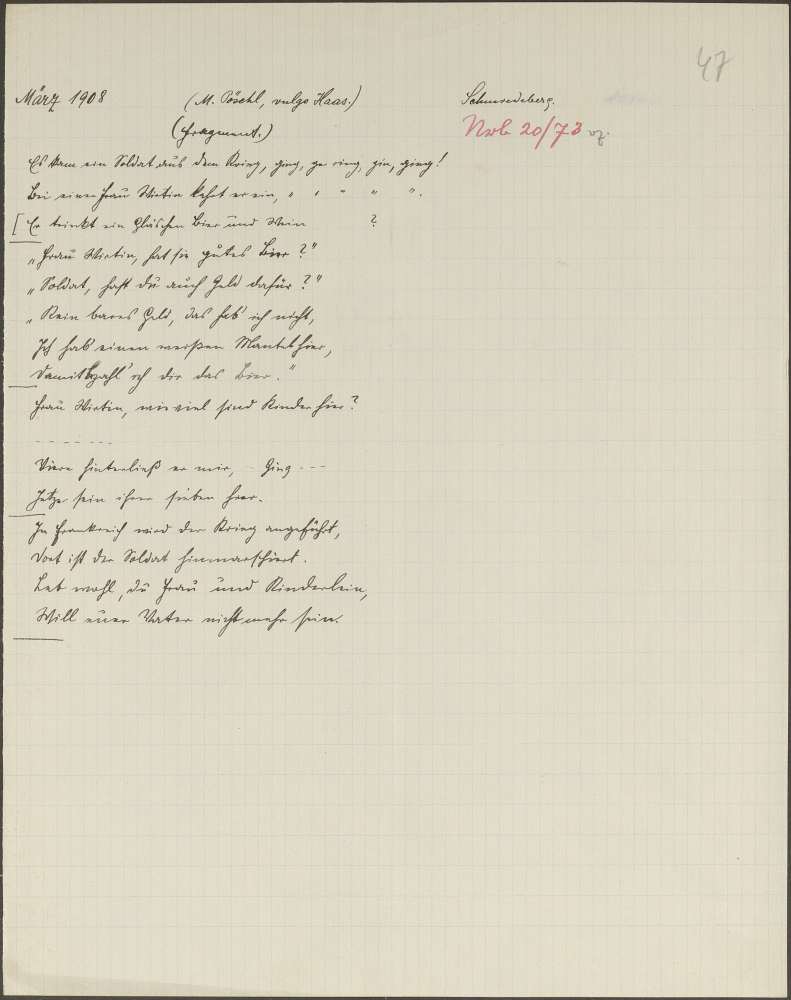 47
März 1908 (M. Pöschl, vulgo Haas.) Schmiedeberg.
(Fragment.) Nrb 20/73
Es kam ein Soldat aus dem Krieg, ging, ge ring, gin, ging!
Bei einer Frau Wirtin kehrt er ein, " " " " ".
[ Er trinkt ein Gläschen Bier und Wein ?
„Frau Wirtin, hat sie gutes Bier?"
„Soldat, hast du auch Geld dafür?"
„Kein bares Geld, das hab' ich nicht,
Ich hab' einen weißen Mantel hier,
Damit bezahl' ich dir das Bier."
Frau Wirtin, wie viel sind Kinder hier?
- - - - - -
Viere hinterließ er mir, - Ging - - -
Jetze sein ihrer sieben hier.
In Frankreich wird der Krieg angeführt,
Dort ist der Soldat hinmarschiert.
Leb wohl, du Frau und Kinderlein,
Will euer Vater nicht mehr sein.